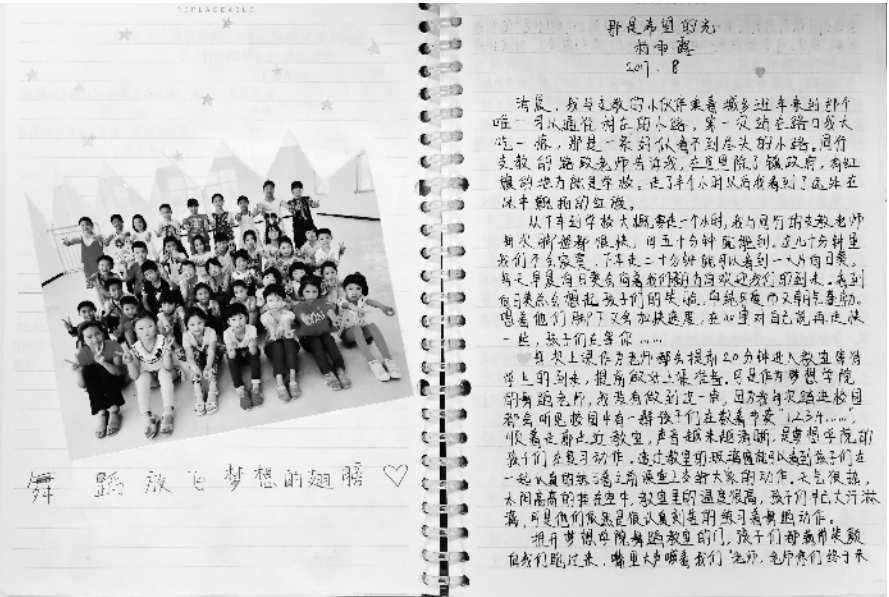 舞蹈放飞梦想的翅膀♡
那是希望的光
2017.8
清晨，我与支教的小伙伴乘着城乡班车来到那个
唯一可以通往村庄的小路，第一次站在路口我大
吃一惊，那是一条好似看不到尽头的小路。同行
支教的路政老师告诉我，在这里除了镇政府，有红
旗的地方就是学校。走了半个小时以后我看到了远处在
风中飘扬的红旗。
从下车到学校大概要走一个小时，我与同行的支教老师
每次都走都很快，四五十分钟就能到。这几十分钟里
我们不会寂寞，下车走二十分钟就可以看到一大片向日葵。
每天早晨向日葵会向着我们都为向欢迎我们的到来。看到
向日葵总会想起孩子们的笑脸，单纯
想着他们脚下又会加快速度，在心里对自己说再走快
一些，孩子们在等你……
每次上课作为老师都会提前20分钟进入教室等待
学生的到来，提前做好上课准备。可是作为梦想学院
的舞蹈老师，我没有做到这一点，因为我每次踏进校园
都会听见校园中有一群孩子们在数着节奏"1234……"，
顺着走廊走近教室，声音越来越清晰，是梦想学院的
孩子们在复习动作。透过教室的玻璃窗就可以看到孩子们在
一起认真的练习着之前课堂上交给大家的动作。天气很热，
太阳高高的挂在空中，教室里的温度很高，孩子们早已大汗淋
漓，可是他们依然是很认真刻苦的练习着舞蹈动作。
推开梦想学院舞蹈教室的门，孩子们都带着笑颜
向我们跑过来，嘴里大声喊着我们"老师，老师你们终于来